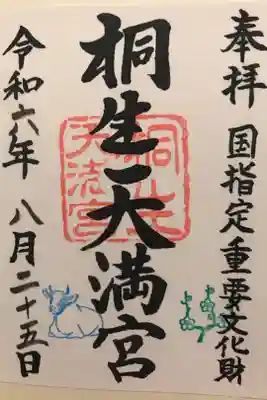 奉拝 国指定重要文化財
桐生天満宮
令和六年 八月二十五日